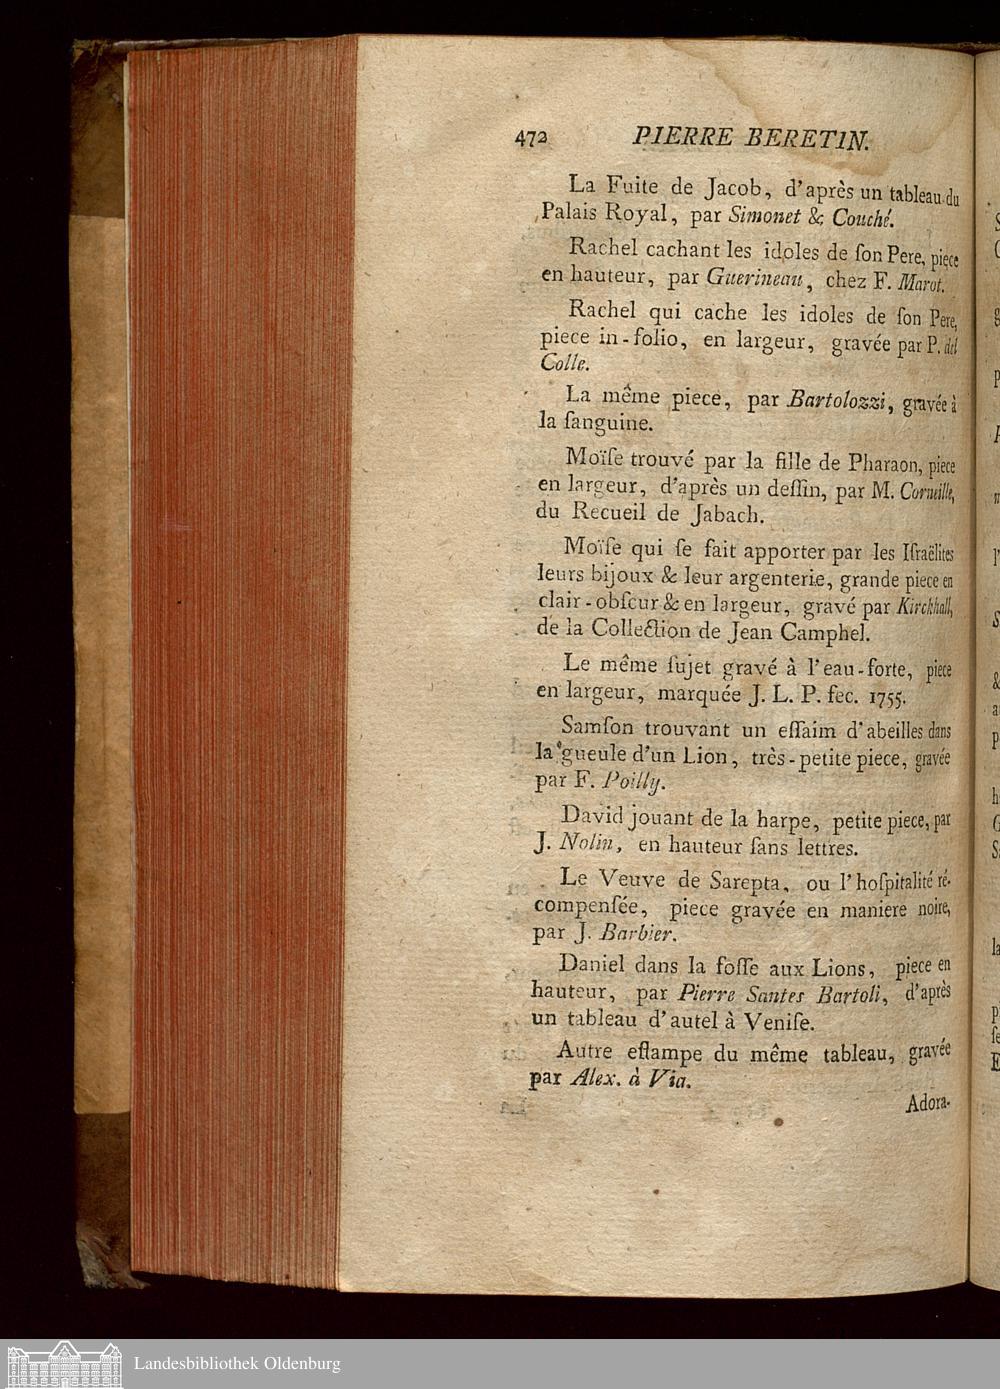 472 PIERRE BERETIN.
La Fuite de Jacob, d'après un tableau du
Palais Royal, par Simonet & Couché.
Rachel cachant les idoles de ſon Pere, piece
en hauteur, par Guerineau, chez F. Marot.
Rachel qui cache les idoles de ſon Pere,
piece in-folio, en largeur, gravée par P. del
Colle.
La même piece, par Bartolozzi, gravée à
la ſanguine.
Moïſe trouvé par la fille de Pharaon, piece
en largeur, d'après un deſſin, par M. Corneille,
du Recueil de Jabach.
Moïſe qui ſe fait apporter par les Iſraëlites
leurs bijoux & leur argenterie, grande piece en
clair-obſcur & en largeur, gravé par Kirckhall,
de la Collection de Jean Camphel.
Le même ſujet gravé à l'eau-forte, piece
en largeur, marquée J. L. P. fec. 1755.
Samſon trouvant un eſſaim d'abeilles dans
la gueule d'un Lion, très-petite piece, gravée
par F. Poilly.
David jouant de la harpe, petite piece, par
J. Nolin, en hauteur ſans lettres.
Le Veuve de Sarepta, ou l'hoſpitalité ré-
compenſée, piece gravée en maniere noire,
par J. Barbier.
Daniel dans la foſſe aux Lions, piece en
hauteur, par Pierre Santes Bartoli, d'après
un tableau d'autel à Veniſe.
Autre eſtampe du même tableau, gravée
par Alex. à Via.
Adora-
Landesbibliothek Oldenburg